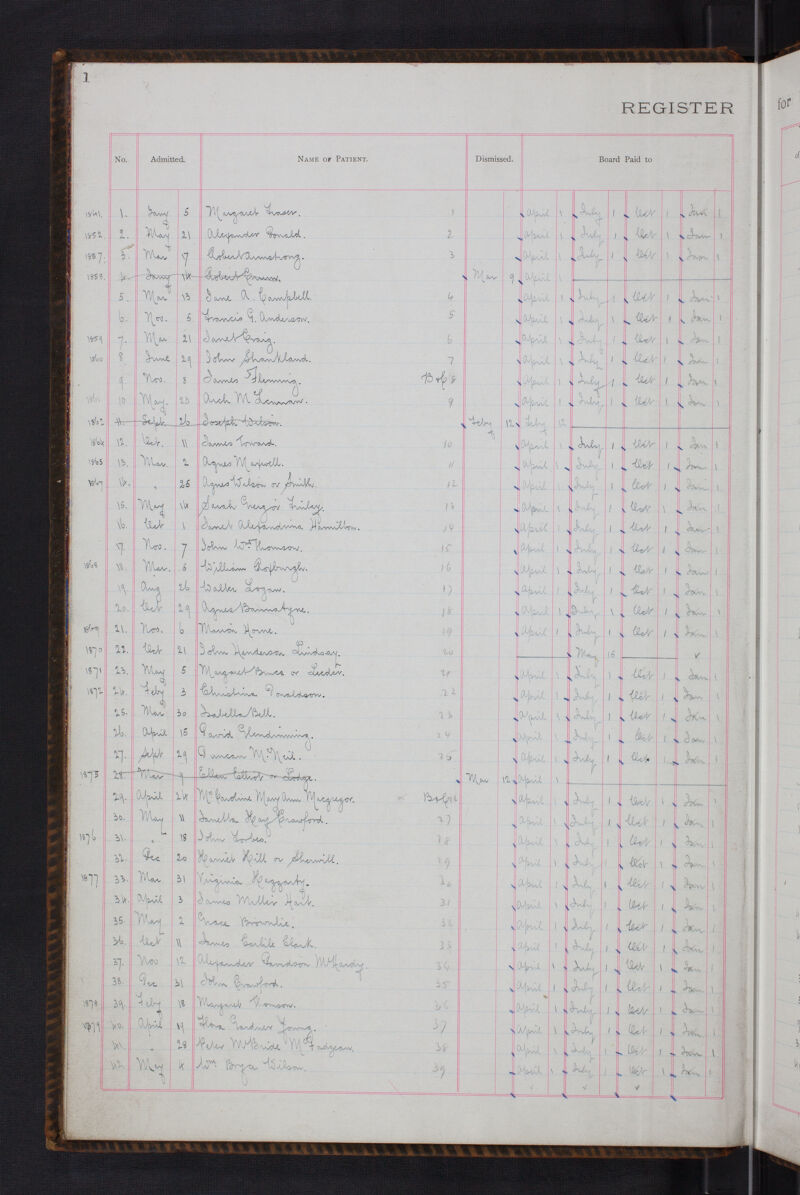 1
REGISTER
for
No. Admitted. NAME OF PATIENT. Dismissed. Board Paid to
1841. 1. Jany 5 Margaret Fraser. 1 April 1 July 1 Oct 1 Jan 1
1852 2. May 21 Alexander Donald. 2 April 1 July 1 Oct 1 Jan 1
1857. 3. Mar 17 Robert Armstrong. 3 April 1 July 1 Oct 1 Jan 1
1858. 4. Jany 14 Robert Mar 9 April 1
5. Mar 13 Jane A. Campbell. 4 April 1 July 1 Oct 1 Jan 1
6. Nov. 5 Francis G. Anderson. 5 April 1 July 1 Oct 1 Jan 1
1859 7. Mar 21 Janet Craig. 6 April 1 July 1 Oct 1 Jan 1
1860 8 June 29 John Shankland. 7 April 1 July 1 Oct 1 Jan 1
9 Nov. 8 James Fleming. 8 April 1 July 1 Oct 1 Jan 1
1861 10 May. 23 Arch McLennan. 9 April 1 July 1 Oct 1 Jan 1
1862 11. Sept 26 Joseph Watson. Feby 12 Feby 12
1864 12. Oct. 11 James Howard. 10 April 1 July 1 Oct 1 Jan 1
1865 13. Mar. 2 Agnes Maxwell. 11 April 1 July 1 Oct 1 Jan 1
1867 14. " 26 Agnes Wilson or Smith. 12 April 1 July 1 Oct 1 Jan 1
15. May 14 Sarah Greig or Finlay. 13 April 1 July 1 Oct 1 Jan 1
16. Oct 1 Janet Alexandrina Hamilton. 14 April 1 July 1 Oct 1 Jan 1
17. Nov. 7 John Wm Thomson. 15 April 1 July 1 Oct 1 Jan 1
18. Mar. 5 William Roxburgh. 16 April 1 July 1 Oct 1 Jan 1
19. Aug 26 Walter Logan. 17 April 1 July 1 Oct 1 Jan 1
20. Oct 29 Agnes Bannatyne. 18 April 1 July 1 Oct 1 Jan 1
1869 21. Nov. 6 Marion Horne. 19 April 1 July 1 Oct 1 Jan 1
1870 22. Oct 21 John Henderson Lindsay. 20 May 16
1871 23. May 5 Margaret Bruce or April 1 July 1 Oct 1 Jan 1
1872 24. Feby 3 Christina Donaldson. 22 April 1 July 1 Oct 1 Jan 1
25. Mar 30 Isabella Bell. 23 April 1 July 1 Oct 1 Jan 1
26. April 15 David Glendinning. 24 April 1 July 1 Oct 1 Jan 1
27. Sept 29 Duncan McNeil. 25 April 1 July 1 Oct 1 Jan 1
1873 28. Mar 9 Ellen Elliot or Lodge. Mar 12 April 1
29. April 24 Caroline Mary Ann Macgregor. April 1 July 1 Oct 1 Jan 1
30. May 11 Janetta Hay Crawford. 27 April 1 July 1 Oct 1 Jan 1
1876 31. " 18 John Forbes. 28 April 1 July 1 Oct 1 Jan 1
32. Dec 20 Harriet Hill or Sherwill. 29 April 1 July 1 Oct 1 Jan 1
1877 33. Mar 31 Virginia Heggarty. 30 April 1 July 1 Oct 1 Jan 1
34. April 3 James Miller Hart. 31 April 1 July 1 Oct 1 Jan 1
35. May 2 Grace Brownlie. April 1 July 1 Oct 1 Jan 1
36. Oct 11 James Carlile Clark. 33 April 1 July 1 Oct 1 Jan 1
37. Nov 12 Alexander Davidson McHardy. 34 April 1 July 1 Oct 1 Jan 1
38. Dec 31 John Crawford. 35 April 1 July 1 Oct 1 Jan 1
1878 39. Feby 18 Margaret 36 April 1 July 1 Oct 1 Jan 1
1879 40. April 14 Flora Gardner Young. 37 April 1 July 1 Oct 1 Jan 1
41. " 28 Peter McBride McFadgean. 38 April 1 July 1 Oct 1 Jan 1
42. May 4 Wm Bryce Wilson. 39 April 1 July 1 Oct 1 Jan 1